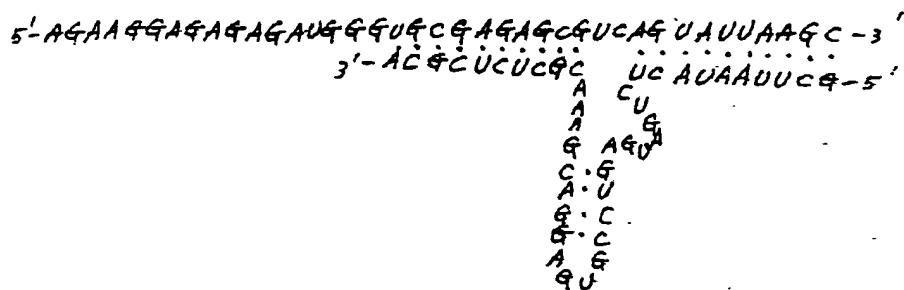 5'-AGAAGGAGAGAGAUGGGUGCGAGAGCGUCAGUAUUAAGC-3'
3'-ACGCUCUCGC UC AUAAUUCG-5'
A C
A U
A G
G AGUA
C·G
A·U
G·C
G·C
A G
GU